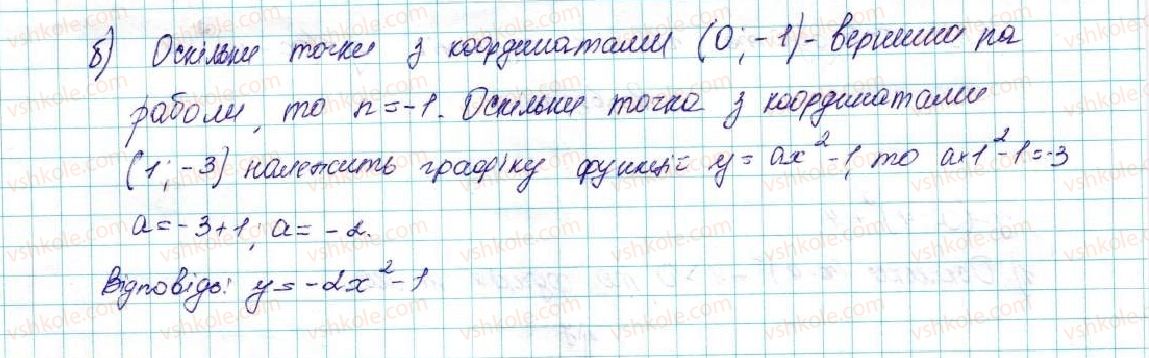 б) Оскільки точки з координатами (0; -1) - вершина па
раболи, то n = -1. Оскільки точка з координатами
(1; -3) належить графіку функції y = ax² - 1, то a·1² - 1 = -3
a = -3 + 1; a = -2.
Відповідь: y = -2x² - 1